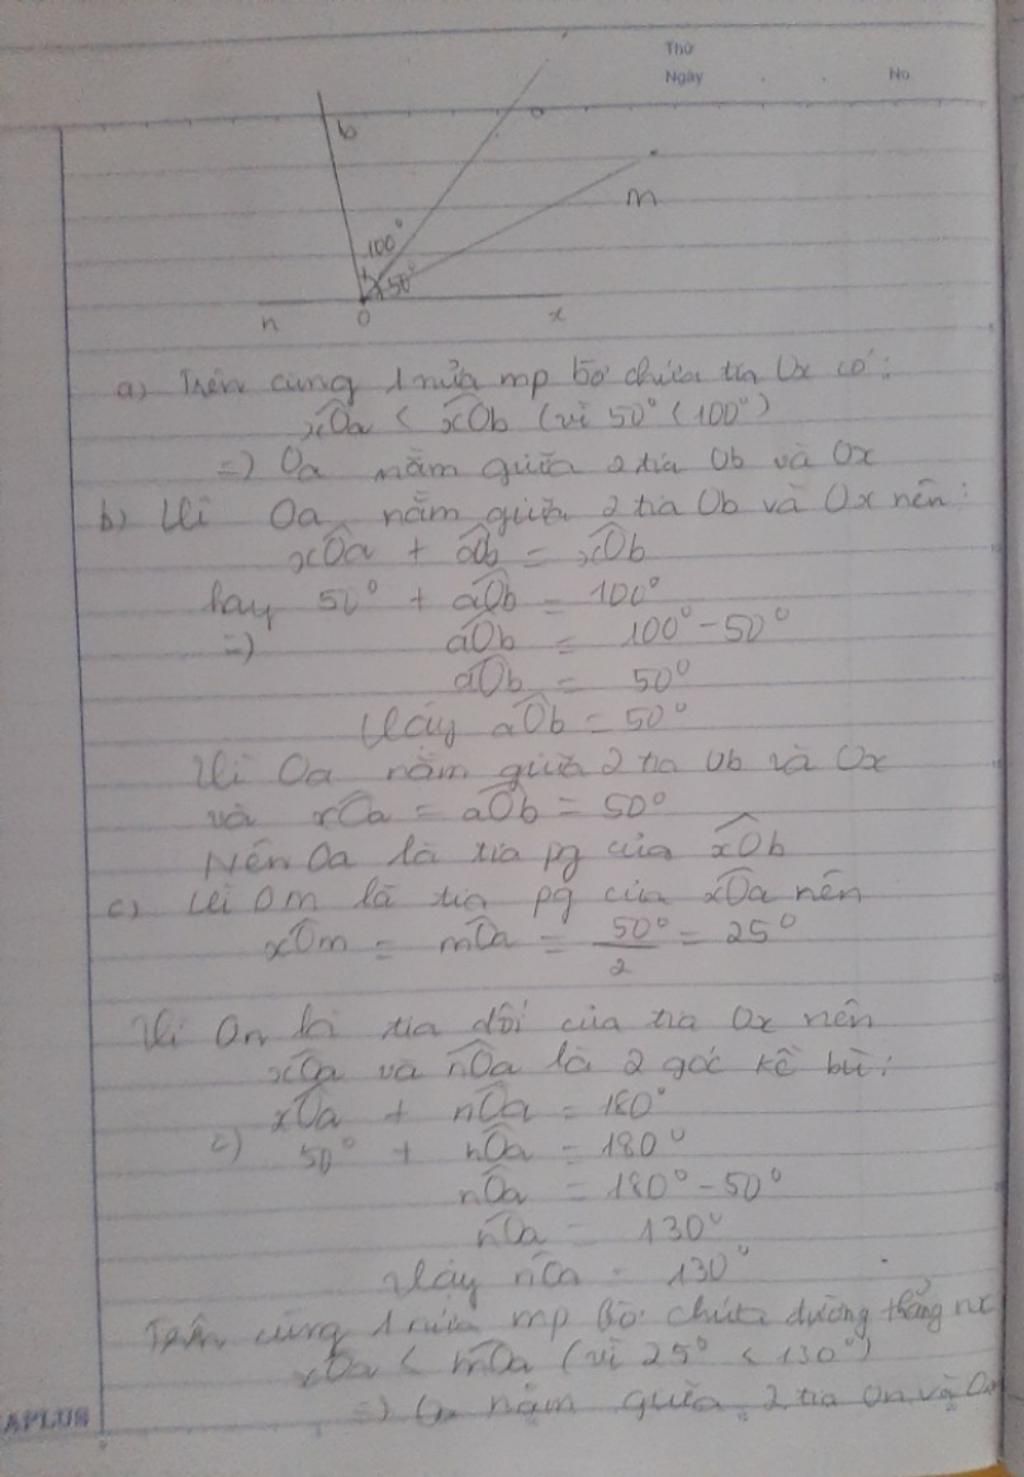 Thứ
Ngày No
b
a
m
100°
50°
n O x
a) Trên cùng 1 nửa mp bờ chứa tia Ox có:
xOa < xOb (vì 50° < 100°)
=) Oa nằm giữa 2 tia Ob và Ox
b) Vì Oa nằm giữa 2 tia Ob và Ox nên:
xOa + aOb = xOb
hay 50° + aOb = 100°
=) aOb = 100° - 50°
aOb = 50°
Vậy aOb = 50°
Vì Oa nằm giữa 2 tia Ob và Ox
và xOa = aOb = 50°
Nên Oa là tia pg của xOb
c) Vì Om là tia pg của xOa nên
xOm = mOa = 50°/2 = 25°
Vì On là tia đối của tia Ox nên
xOa và nOa là 2 góc kề bù:
xOa + nOa = 180°
50° + nOa = 180°
nOa = 180° - 50°
nOa = 130°
Vậy nOa = 130°
Trên cùng 1 nửa mp bờ chứa đường thẳng nx
xOa < mOa (vì 25° < 130°)
=) nằm giữa 2 tia On và
APLUS